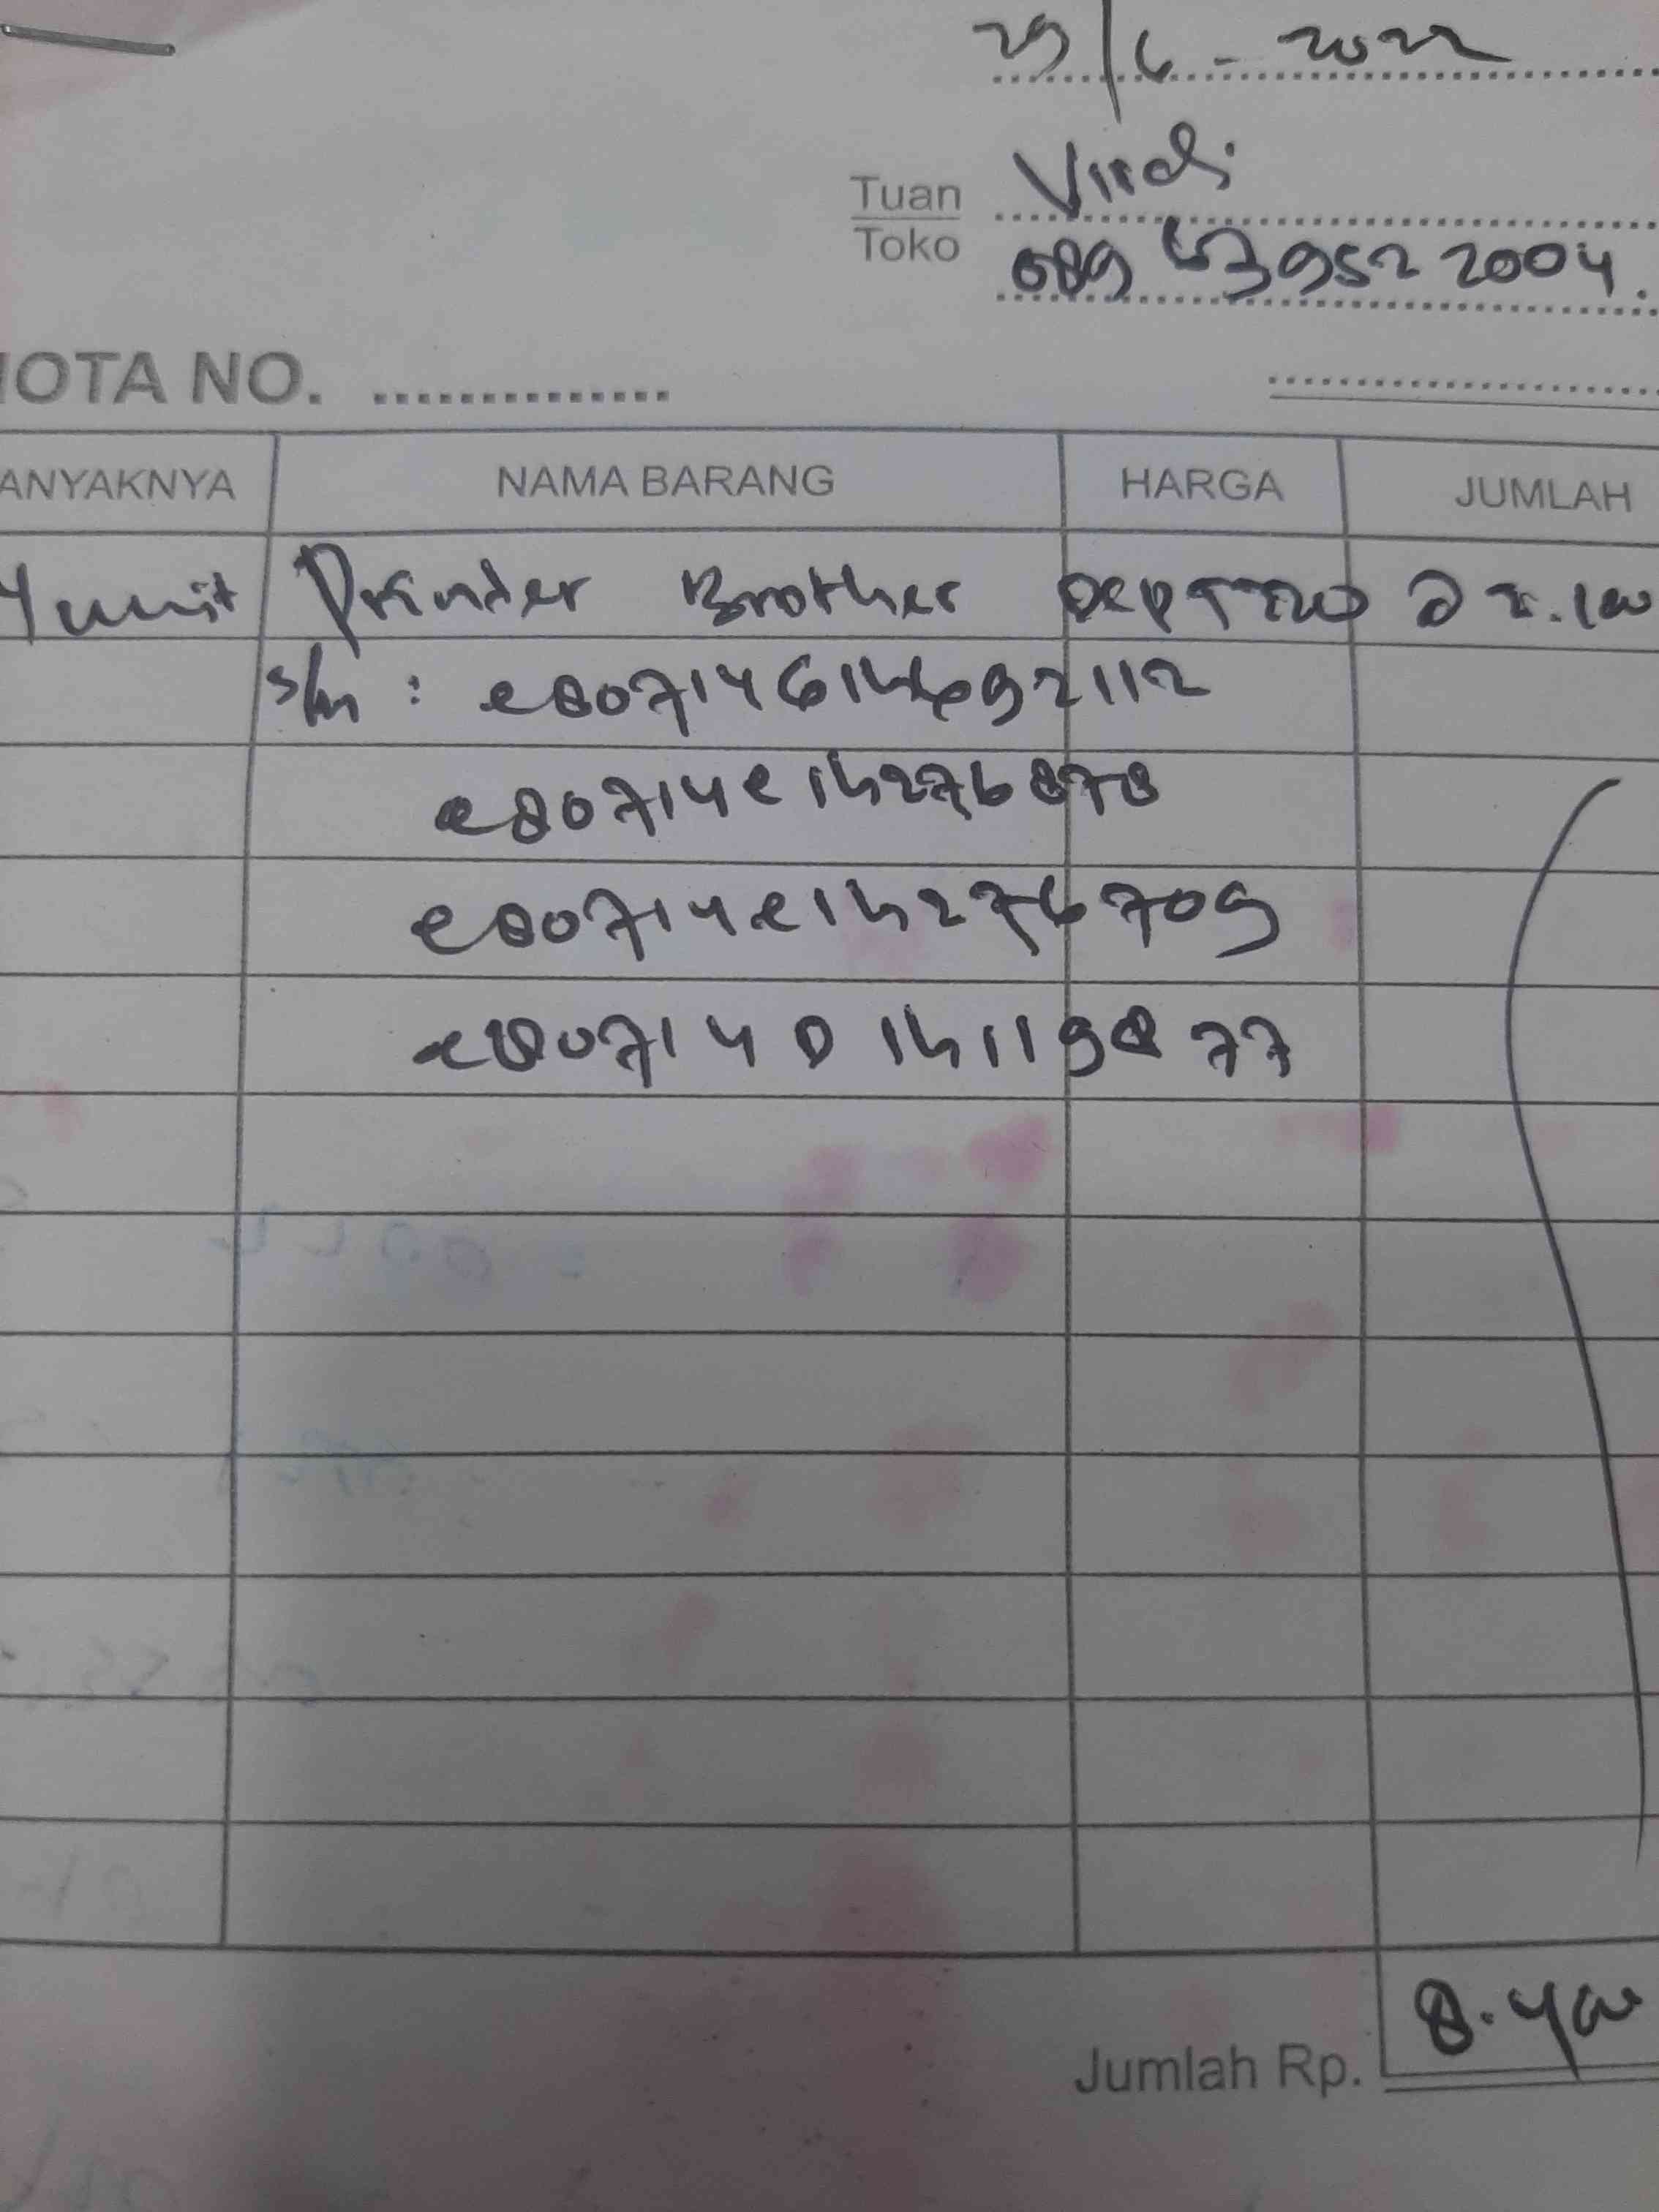 29/6-2022
Tuan Virdi
Toko 089 639522004.
IOTA NO. ...............
ANYAKNYA NAMA BARANG HARGA JUMLAH
4 unit Printer Brother DCPT720 @ 2.100
s/n : e80714G1h692112
e80714e1h276878
e80714e1h276709
e80714D1h119877
Jumlah Rp. 8.400